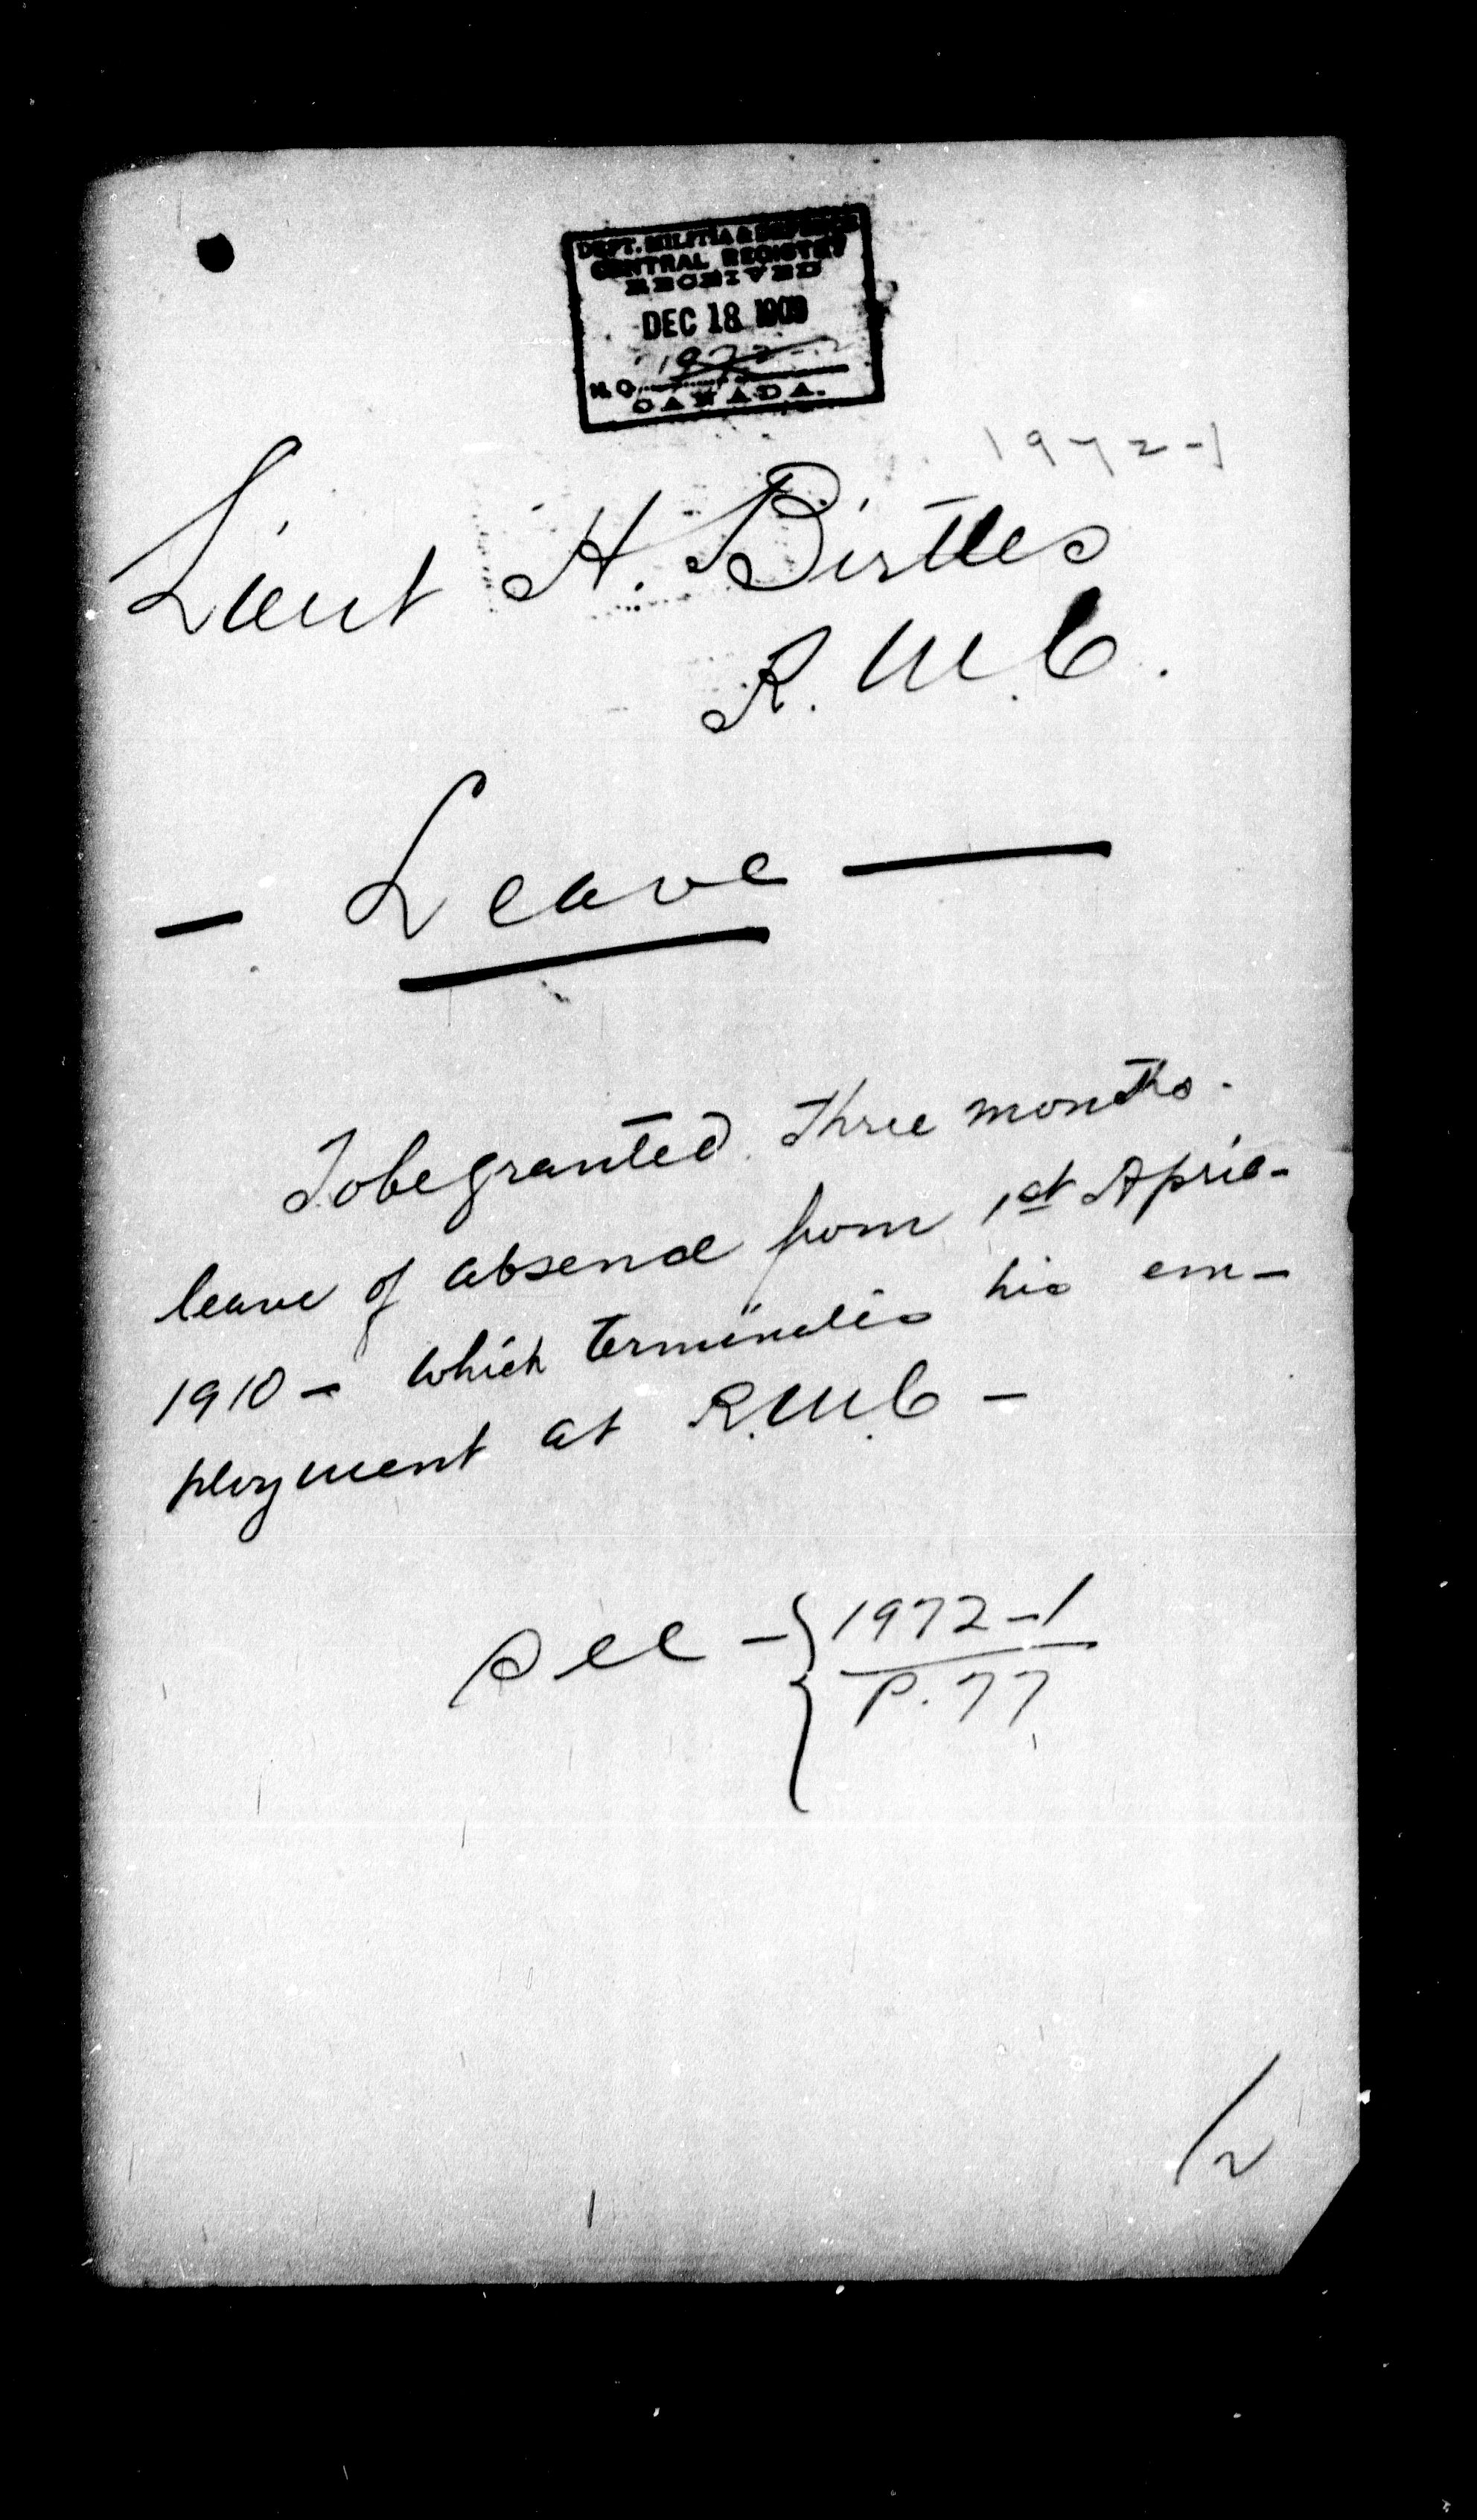 DEPT. MILITIA & DEFENCE
CENTRAL REGISTRY
RECEIVED
DEC 18 1909
N.O.
CANADA.
1972-1
Lieut H. Birtles
R.M.C.
- Leave -
To be granted three months
leave of absence from 1st April-
1910 - which terminates his em-
ployment at R.M.C -
See - { 1972-1
P. 77
/2